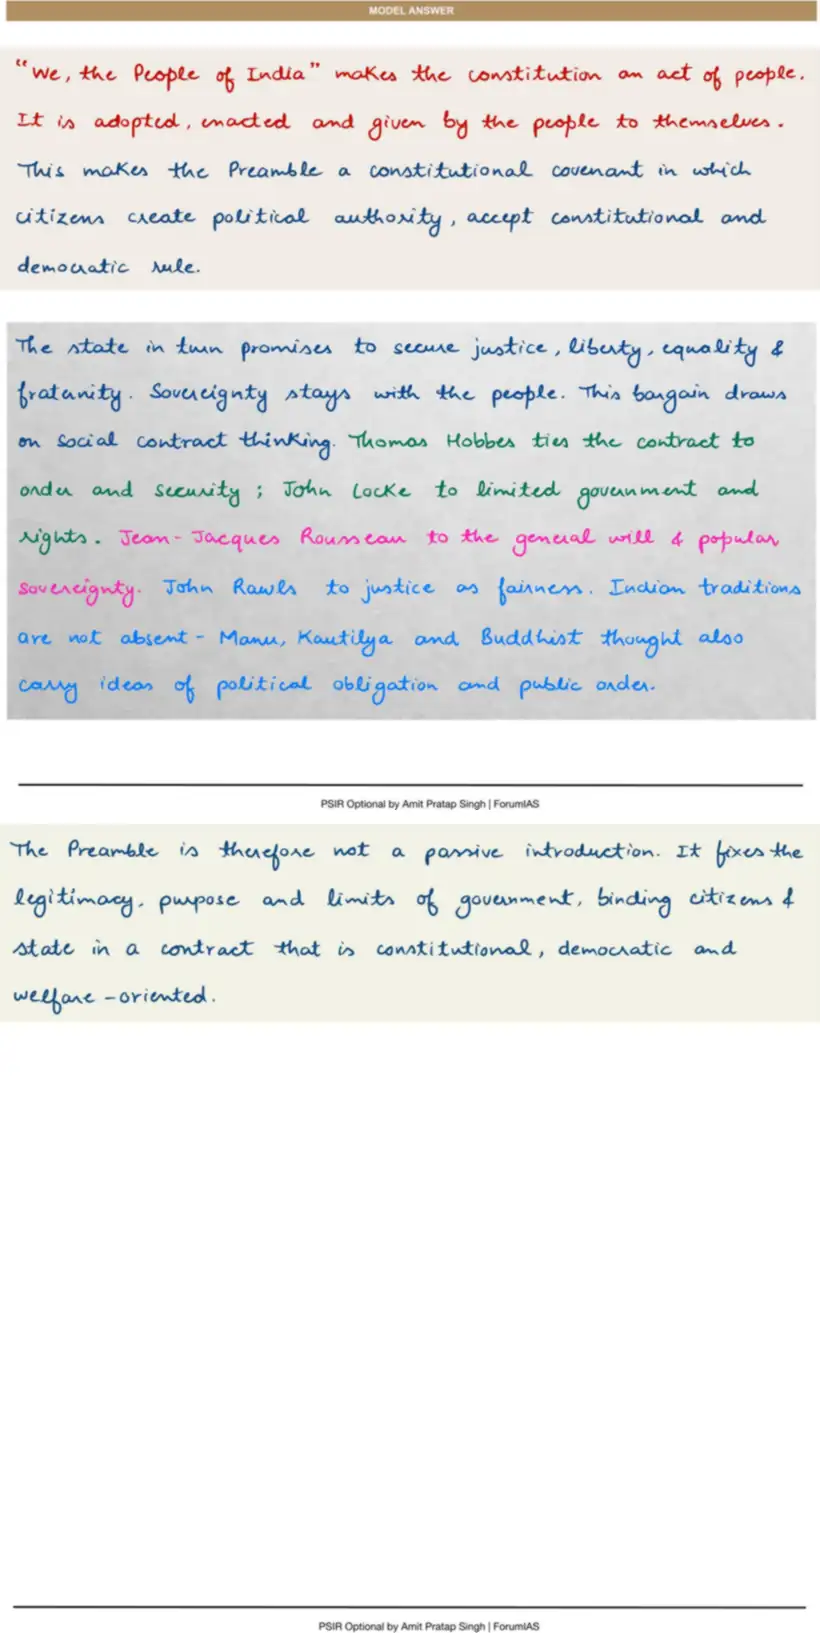 MODEL ANSWER
"We, the People of India" makes the constitution an act of people.
It is adopted, enacted and given by the people to themselves.
This makes the Preamble a constitutional covenant in which
citizens create political authority, accept constitutional and
democratic rule.
The state in turn promises to secure justice, liberty, equality &
fraternity. Sovereignty stays with the people. This bargain draws
on social contract thinking. Thomas Hobbes ties the contract to
order and security ; John Locke to limited government and
rights. Jean-Jacques Rousseau to the general will & popular
sovereignty. John Rawls to justice as fairness. Indian traditions
are not absent - Manu, Kautilya and Buddhist thought also
carry ideas of political obligation and public order.
PSIR Optional by Amit Pratap Singh | ForumIAS
The Preamble is therefore not a passive introduction. It fixes the
legitimacy, purpose and limits of government, binding citizens &
state in a contract that is constitutional, democratic and
welfare-oriented.
PSIR Optional by Amit Pratap Singh | ForumIAS